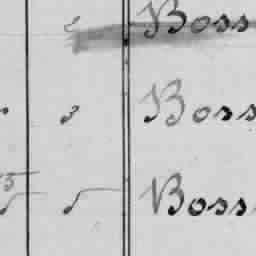 Boss
3 Boss
5 5 Boss